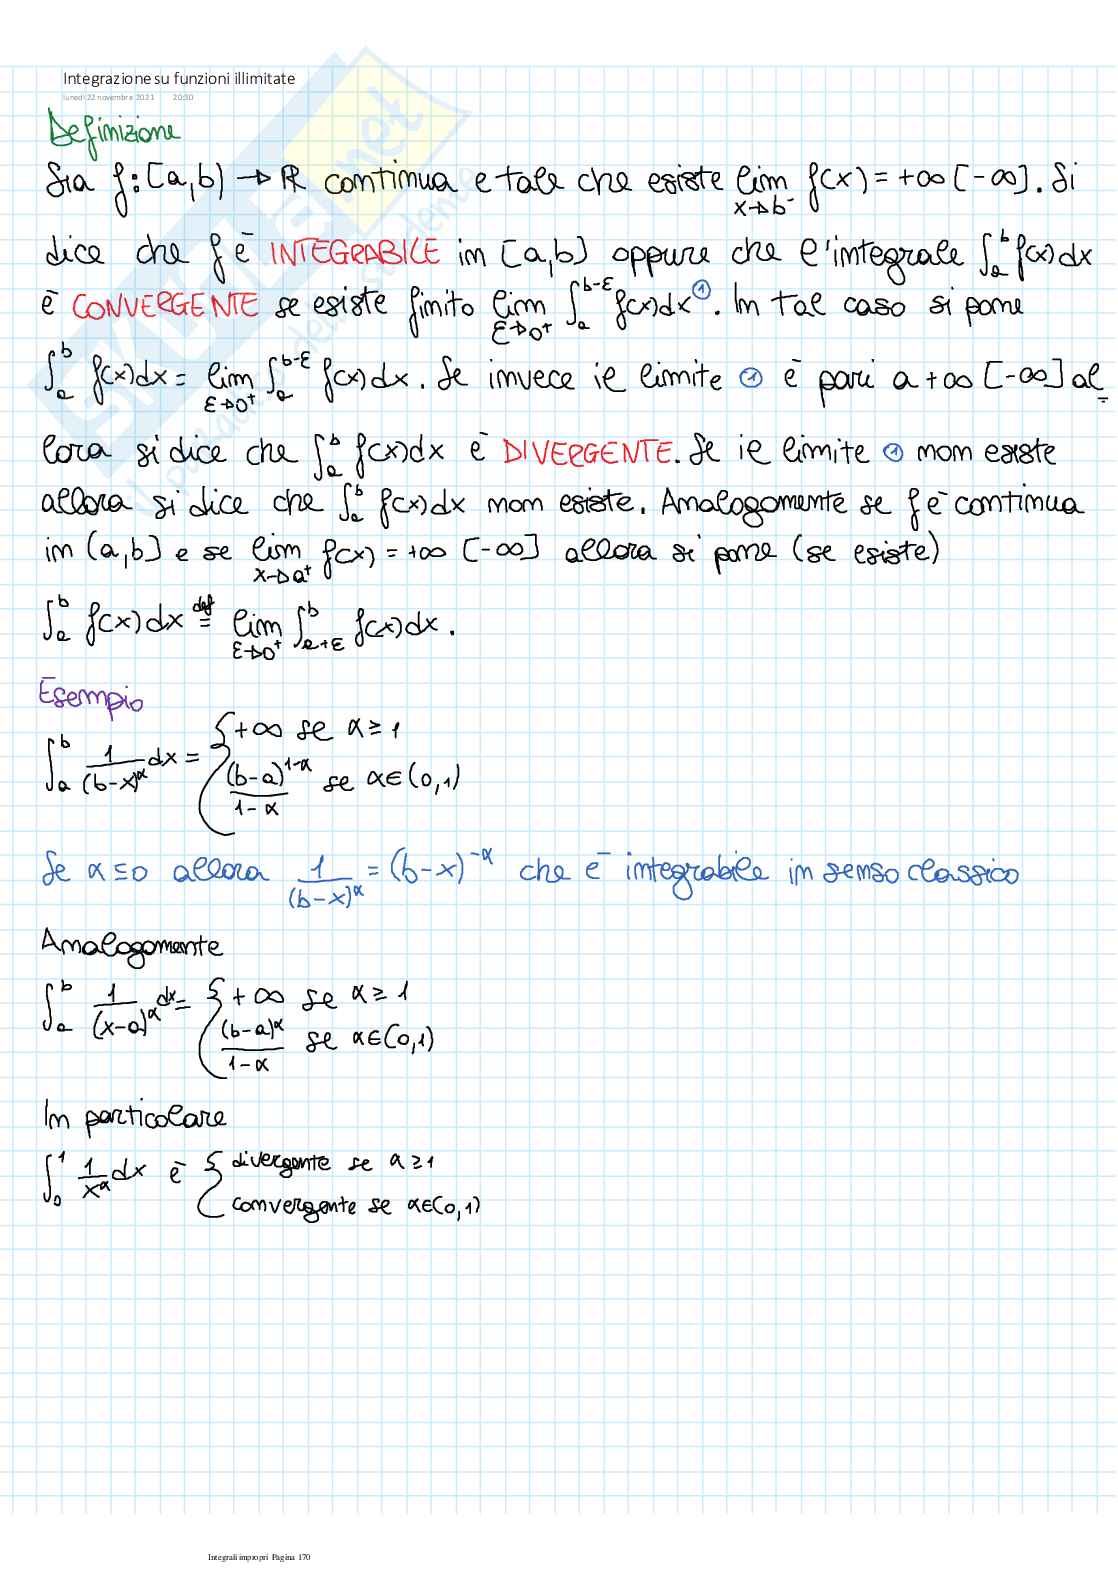 Integrazione su funzioni illimitate
lunedì 22 novembre 2021 20:30
Definizione
Sia f: [a,b) → ℝ continua e tale che esiste lim x→b⁻ f(x) = +∞ [-∞]. Si
dice che f è INTEGRABILE in [a,b] oppure che l'integrale ∫ₐᵇ f(x)dx
è CONVERGENTE se esiste finito lim ε→0⁺ ∫ₐᵇ⁻ᵋ f(x)dx ①. In tal caso si pone
∫ₐᵇ f(x)dx = lim ε→0⁺ ∫ₐᵇ⁻ᵋ f(x)dx. Se invece il limite ① è pari a +∞ [-∞] al=
lora si dice che ∫ₐᵇ f(x)dx è DIVERGENTE. Se il limite ① non esiste
allora si dice che ∫ₐᵇ f(x)dx non esiste. Analogamente se f è continua
in (a,b] e se lim x→a⁺ f(x) = +∞ [-∞] allora si pone (se esiste)
∫ₐᵇ f(x)dx def= lim ε→0⁺ ∫ₐ₊ε^b f(x)dx.
Esempio
∫ₐᵇ 1/(b-x)^α dx = { +∞ se α ≥ 1
(b-a)^(1-α)/(1-α) se α∈(0,1)
Se α ≤ 0 allora 1/(b-x)^α = (b-x)^-α che è integrabile in senso classico
Analogamente
∫ₐᵇ 1/(x-a)^α dx = { +∞ se α ≥ 1
(b-a)^α/(1-α) se α∈(0,1)
In particolare
∫₀¹ 1/x^α dx è { divergente se α ≥ 1
convergente se α∈(0,1)
Integrali impropri Pagina 170